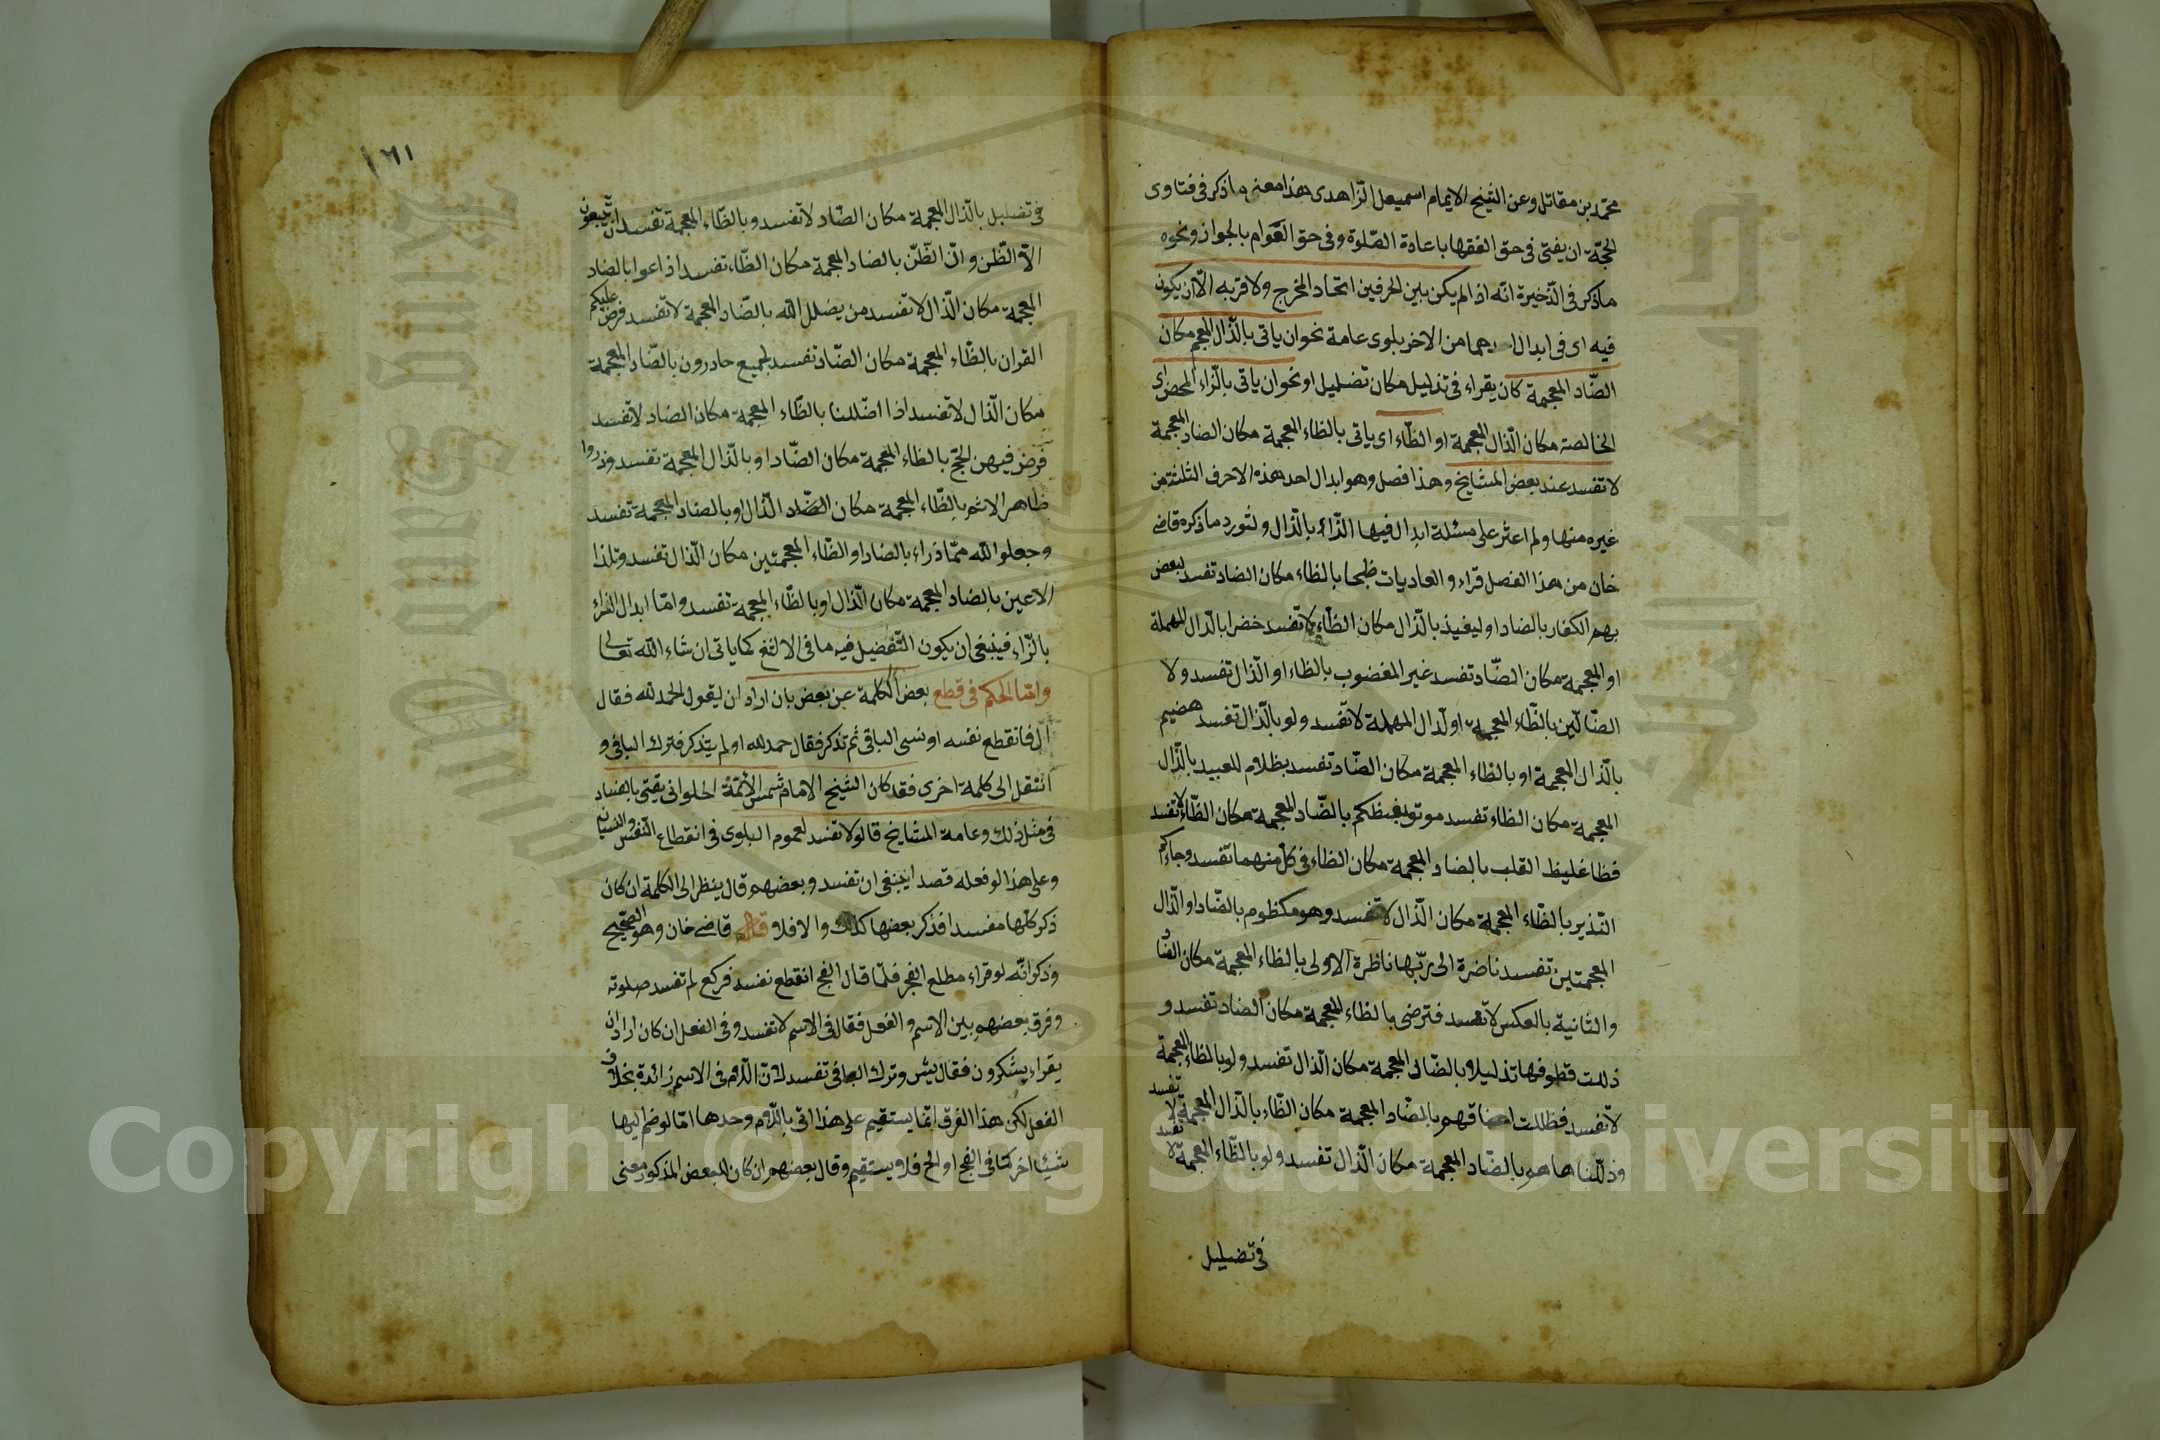 محمد بن مقاتل وعن الشيخ الامام اسمعيل الزاهدى هذا معنى ما ذكر فى فتاوى
الحجة ان يفتى فى حق الفقها باعادة الصلوة وفى حق العوام بالجواز ونحوه
ما ذكر فى الذخيرة انه اذا لم يكن بين الحرفين اتحاد المخرج ولا قربه الا ان يكون
فيه اى فى ابدال احدهما من الاخر بلوى عامة نحو ان ياتى بالذال المعجم مكان
الضاد المعجمة كان يقراء فى تذليل مكان تضليل او نحو ان ياتى بالزاء المحض اى
الخالصة مكان الذال المعجمة او الظاء اى ياتى بالظاء المعجمة مكان الضاد المعجمة
لا تفسد عند بعض المشايخ وهذا فصل وهو ابدال احد هذه الاحرف الثلثة من
غيره منها ولم اعثر على مسئلة ابدال فيها الذاء بالذال ولنورد ما ذكره قاضى
خان من هذا الفصل قراء والعاديات ظبحا بالظاء مكان الضاد تفسد ليغيض
بهم الكفار بالضاد او ليغيذ بالذال مكان الظاء لا تفسد خضرا بالذال المهملة
او المعجمة مكان الضاد تفسد غير المغضوب بالظاء او الذال تفسد ولا
الضالين بالظاء المعجمة او الدال المهملة لا تفسد ولو بالذال تفسد هضيم
بالذال المعجمة او بالظاء المعجمة مكان الضاد تفسد بظلام للعبيد بالذال
المعجمة مكان الظاء تفسد موتوا بغيظكم بالضاد المعجمة مكان الظاء لا تفسد
فظا غليظ القلب بالضاد المعجمة مكان الظاء فى كل منهما تفسد وجاءكم
النذير بالظاء المعجمة مكان الذال لا تفسد وهو مكظوم بالضاد او الذال
المعجمتين تفسد ناضرة الى ربها ناظرة الاولى بالظاء المعجمة مكان الضاد
والثانية بالعكس لا تفسد فترضى بالظاء المعجمة مكان الضاد تفسد و
ذللت قطوفها تذليلا بالضاد المعجمة مكان الذال تفسد ولو بالظاء المعجمة
لا تفسد فظللت اعناقهم بالضاد المعجمة مكان الظاء بالذال المعجمة لا تفسد
وذللناها هو بالضاد المعجمة مكان الذال تفسد ولو بالظاء المعجمة لا تفسد
فى تضليل
١٦١
فى تضليل بالذال المعجمة مكان الضاد لا تفسد وبالظاء المعجمة تفسد ان يتبعون
الا الظن وان الظن بالضاد المعجمة مكان الظاء تفسد اذاعوا بالضاد
المعجمة مكان الذال لا تفسد من يضلل الله بالضاد المعجمة لا تفسد فرض عليكم
القران بالظاء المعجمة مكان الضاد تفسد لجميع حاذرون بالضاد المعجمة
مكان الذال لا تفسد اذا اضللنا بالظاء المعجمة مكان الضاد لا تفسد
فرض فيهن الحج بالظاء المعجمة مكان الضاد او بالذال المعجمة تفسد وذروا
ظاهر الاثم بالظاء المعجمة مكان الضاد الذال او بالضاد المعجمة تفسد
وجعلوا الله مما ذراء بالضاد او الظاء المعجمتين مكان الذال تفسد وتلذا
الاعين بالضاد المعجمة مكان الذال او بالظاء المعجمة تفسد واما ابدال الذاء
بالزاء فينبغى ان يكون التفضيل فيه ما فى الالثغ كما ياتى ان شاء الله تعالى
واما الحكم فى قطع بعض الكلمة عن بعض بان اراد ان ليقول الحمد لله فقال
ال فانقطع نفسه او نسى الباقى ثم تذكر فقال حمد لله او لم يتذكر فترك الباقى و
انتقل الى كلمة اخرى فقد كان الشيخ الامام شمس الائمة الحلوانى يفتى بالفساد
فى مثل ذلك وعامة المشايخ قالو لا تفسد لعموم البلوى فى انقطاع النفس والنسيان
وعلى هذا لو فعله قصدا ينبغى ان تفسد وبعضهم قال ينظر الى الكلمة ان كان
ذكر كلها مفسدا فذكر بعضها كذلك والا فلا قال قاضى خان وهو الصحيح
وذكر انه لو قراء مطلع الفجر فلما قال الفج انقطع نفسه فركع لم تفسد صلوته
وفرق بعضهم بين الاسم والفعل فقال فى الاسم لا تفسد وفى الفعل ان كان اراد ان
يقراء يشكرون فقال يش وترك الباقى تفسد لان اللام فى الاسم زائدة بخلاف
الفعل لكن هذا الفرق انما يستقيم على هذا اتى باللام وحدها اما لو ضم اليها
شيئا اخر كما فى الفج او الح فلا يستقيم وقال بعضهم ان كان للبعض المذكور معنى
Copyright © King Saud University